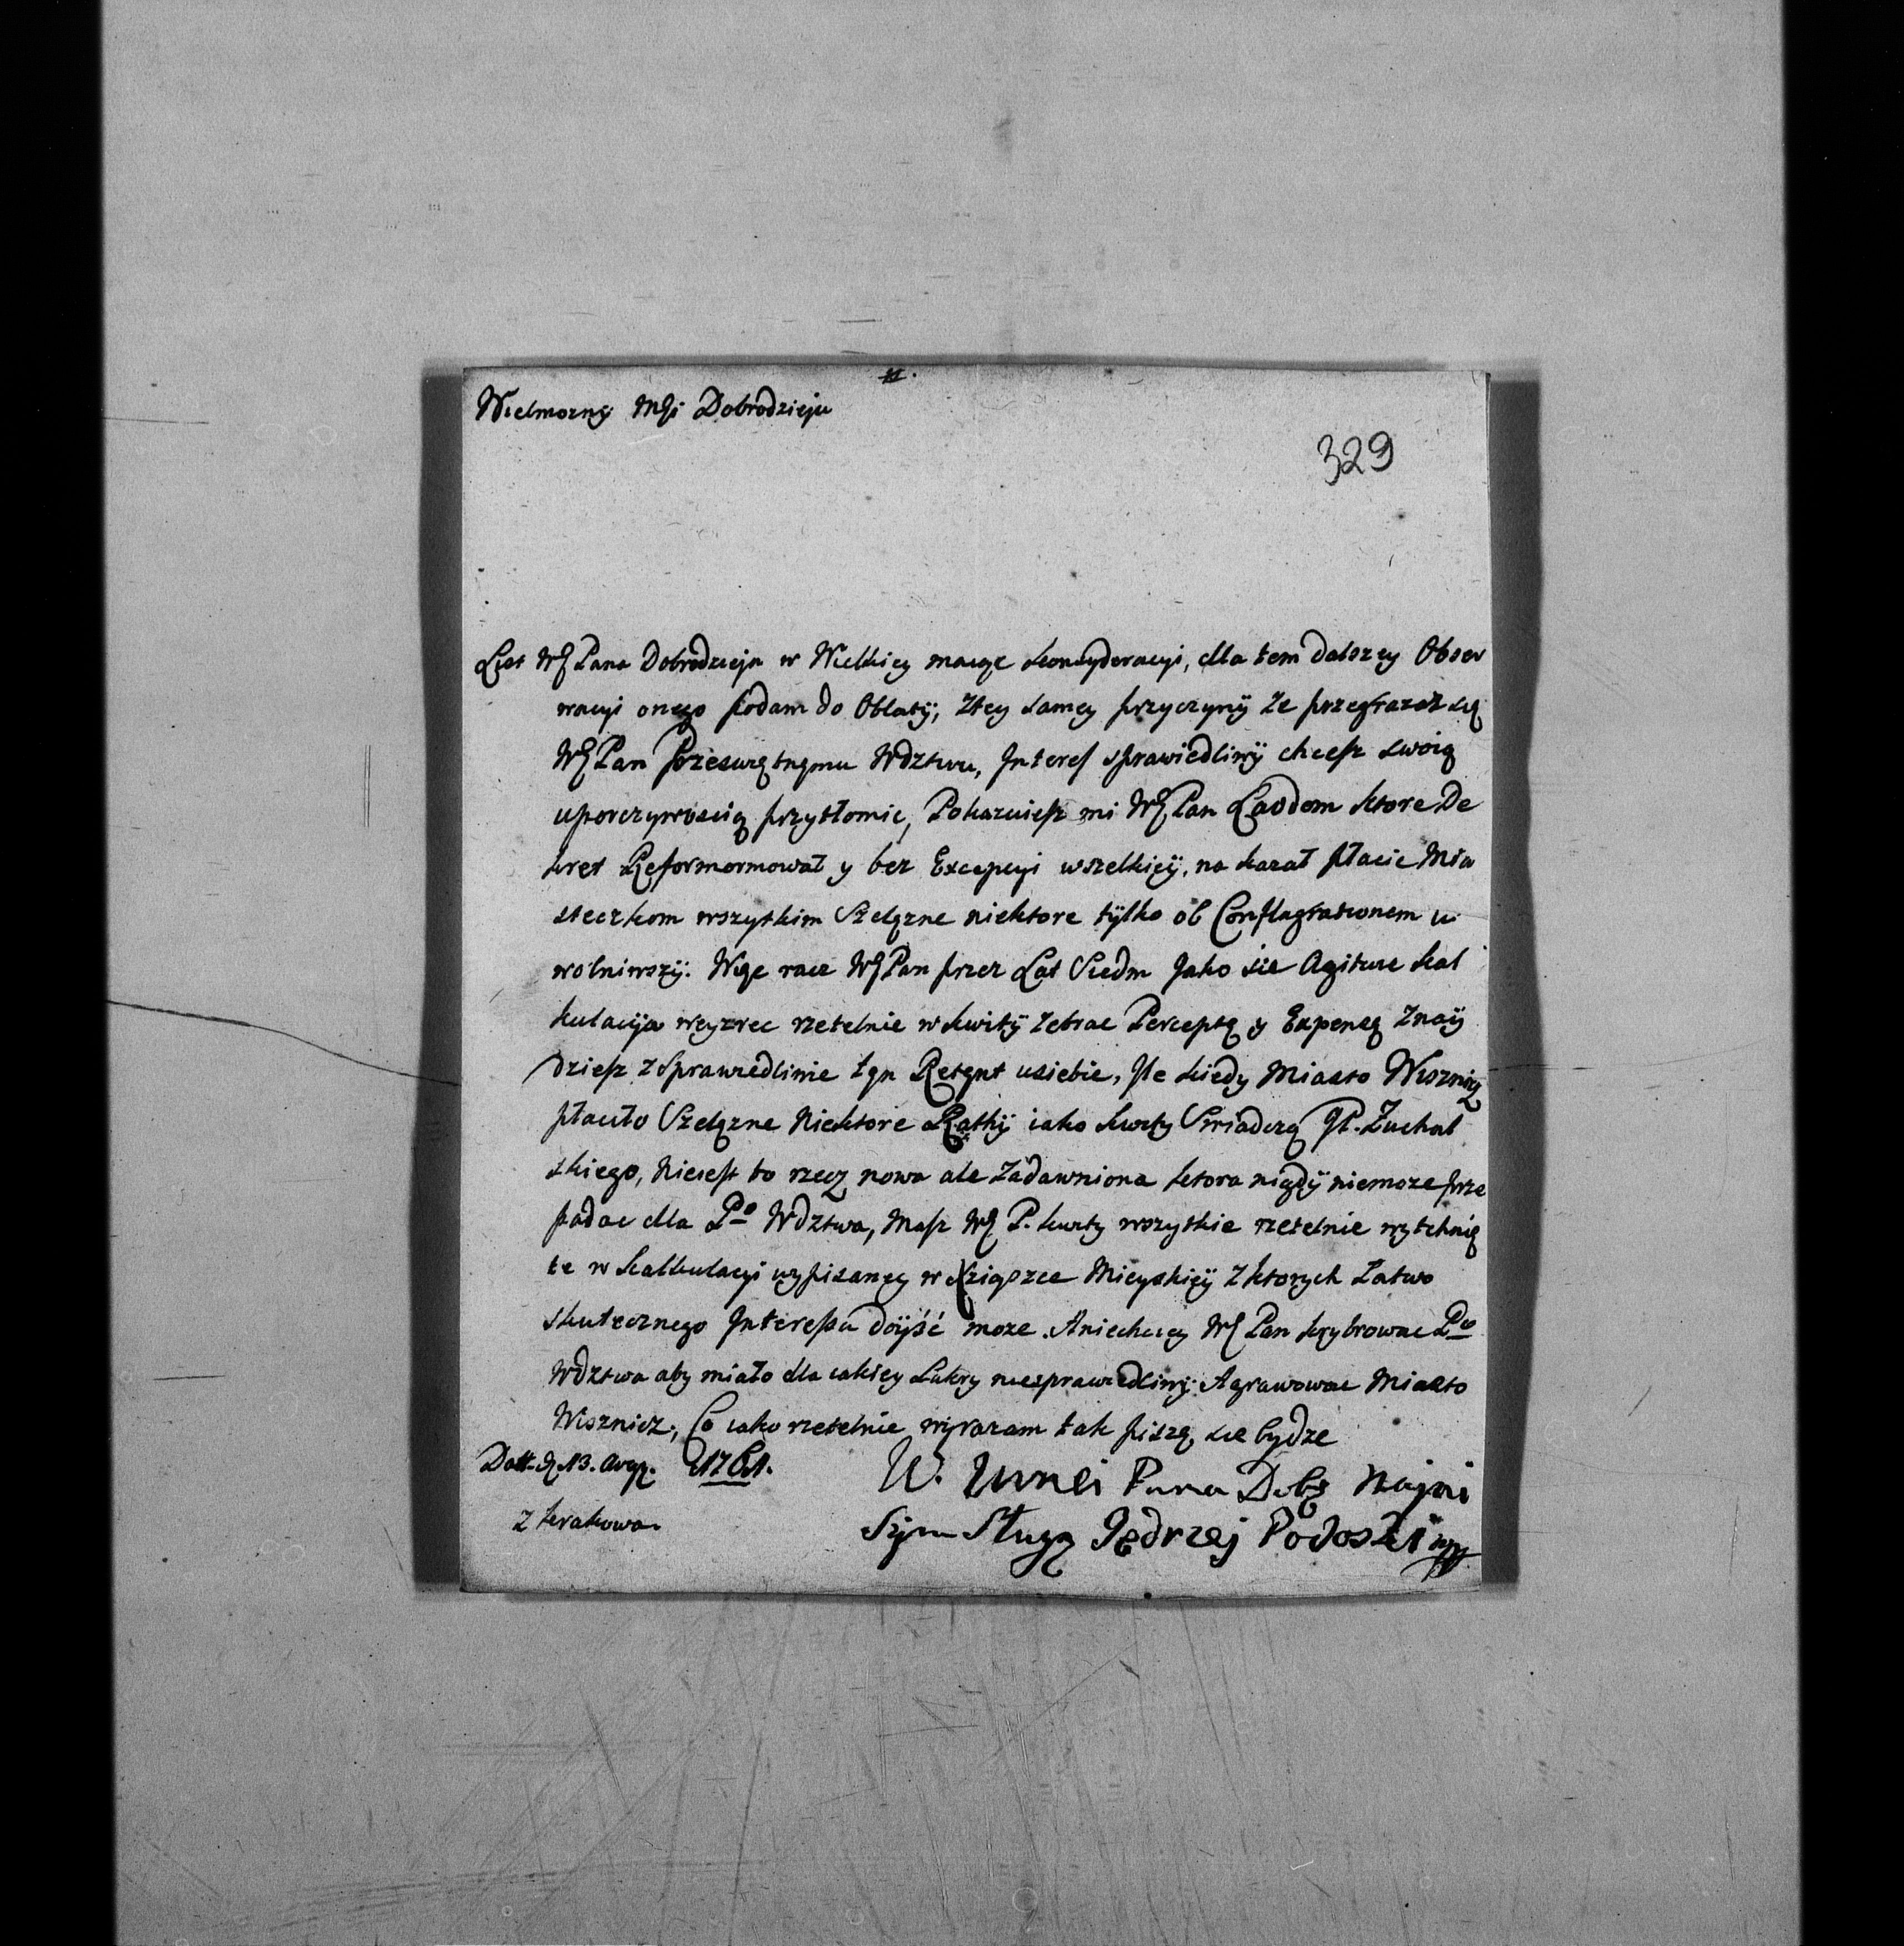 Wielmozny Mći Dobrodzieju
329
List WMPana Dobrodzieja w Wielkiey maiąc konsyderacyi, dla tem dalszey Obser
wacyi onego podam do Oblaty, z tey samey przyczyny ze przegrazasz się
WMPan Przeświętnemu Wdztwu, Interes sprawiedliwy chcesz swoią
uporczywoscią przytłomic, Pokazuiesz mi WMPan Laudom ktore De
kret Reformormował y bez Excepcyi wszelkiey, na kazał płacic Mia
steczkom wszytkim Szelęzne niektore tylko ob Conflagrationem u
wolniwszy. Więc racz WMPan przez Lat Siedm Jako sie Agituie kal
kulacyja weyzrec rzetelnie w kwity zebrac Perceptę y Expensę Znay
dziesz z Sprawiedlinie ten Retent u siebie, Ile kiedy Miasto Wisznicz
płaciło Szelęzne Niektore Ratky iako kwity Swiadczą JP. Zuchal
skiego, Nie iest to rzecz nowa ale Zadawniona ktora nigdy niemoze prze
padac dla Pgo Wdztwa, Masz WM P. kwity wszytkie rzetelnie wytchnię
te w kalkulacyi wypisaney w Xiązsce Mieyskiey z ktorych Łatwo
skutecznego Interessu doyść moze. A niechciey WM Pan skrybowac Pgo
Wdztwa aby miało dla iakiey niesprawiedliwy Agrawowac Miasto
Wisznicz, Co iako rzetelnie wyrazam tak piszę się bydze
Datt. d. 13. Augs. 1761.
z krakowa
W. Pana Dobr Nayni
Szym Sługą Jędrzej Podoski mp